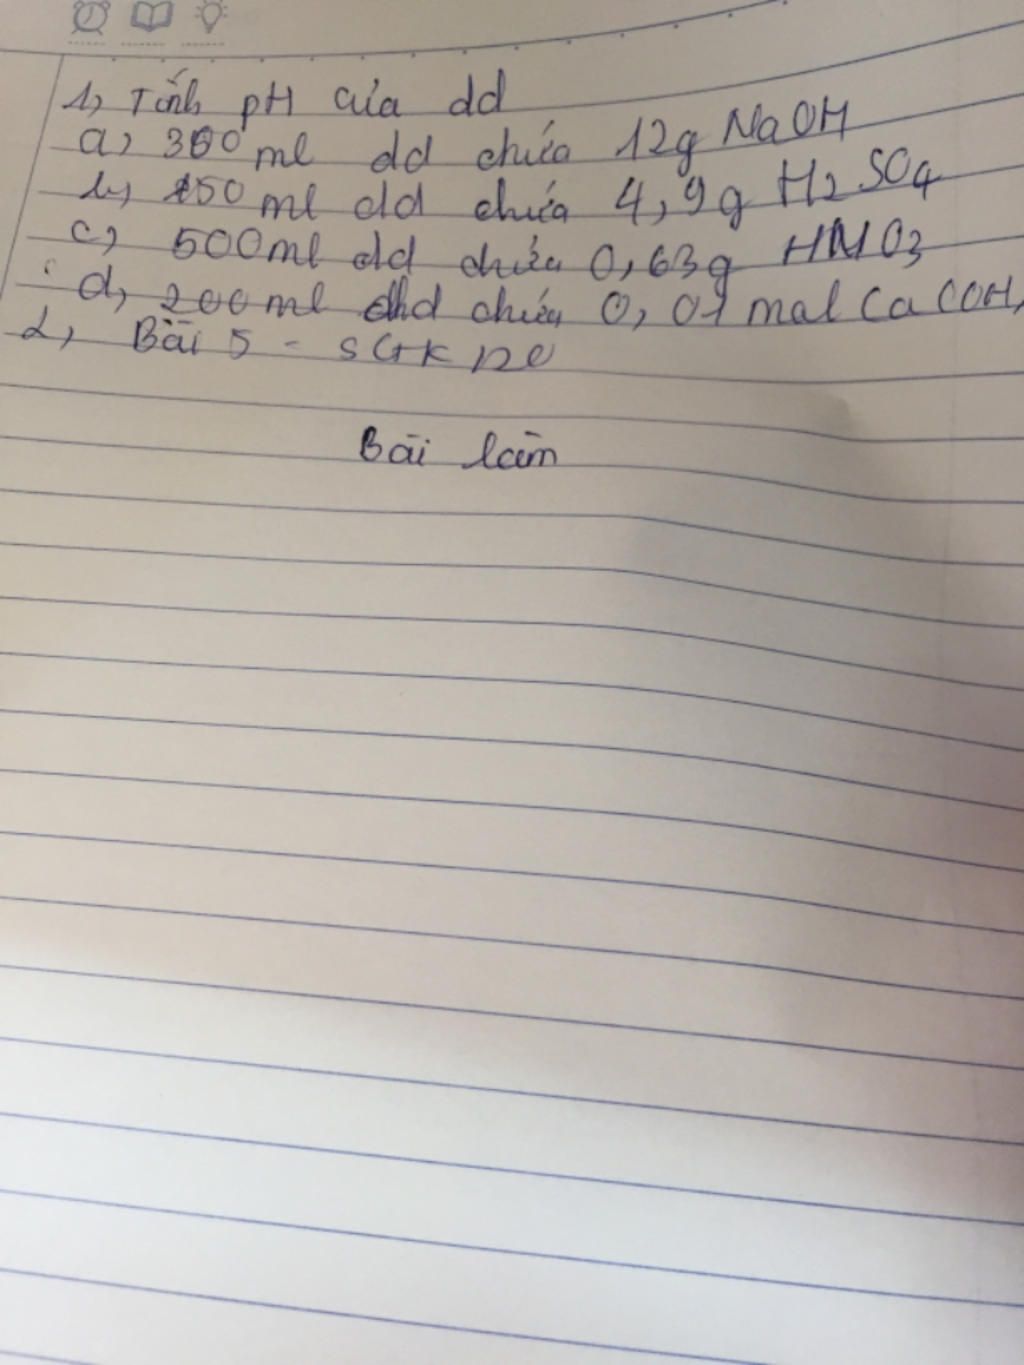 1, Tính pH của dd
a, 300 ml dd chứa 12g NaOH
b, 250 ml dd chứa 4,9g H2SO4
c, 500ml dd chứa 0,63g HNO3
d, 200 ml dd chứa 0,01 mol Ca(OH)
2, Bài 5 - SGK
Bài làm